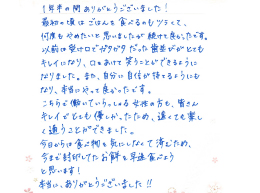 1年半の間ありがとうございました！
最初の頃はごはんを食べるのもツラくて、
何度もやめたいと思いましたが続けて良かったです。
以前は受け口でガタガタだった歯並びがとても
キレイになり、口をあけて笑うことができるように
なりました。また、自分に自信が持てるようにも
なり、本当にやって良かったです。
こちらで働いていらっしゃる女性の方も、皆さん
キレイでとても優しかったため、遠くても楽し
く通うことができました。
今日からは食べ物を気にしなくて済むため、
今まで封印してたお餅を早速食べよう
と思います！
本当に、ありがとうございました!!